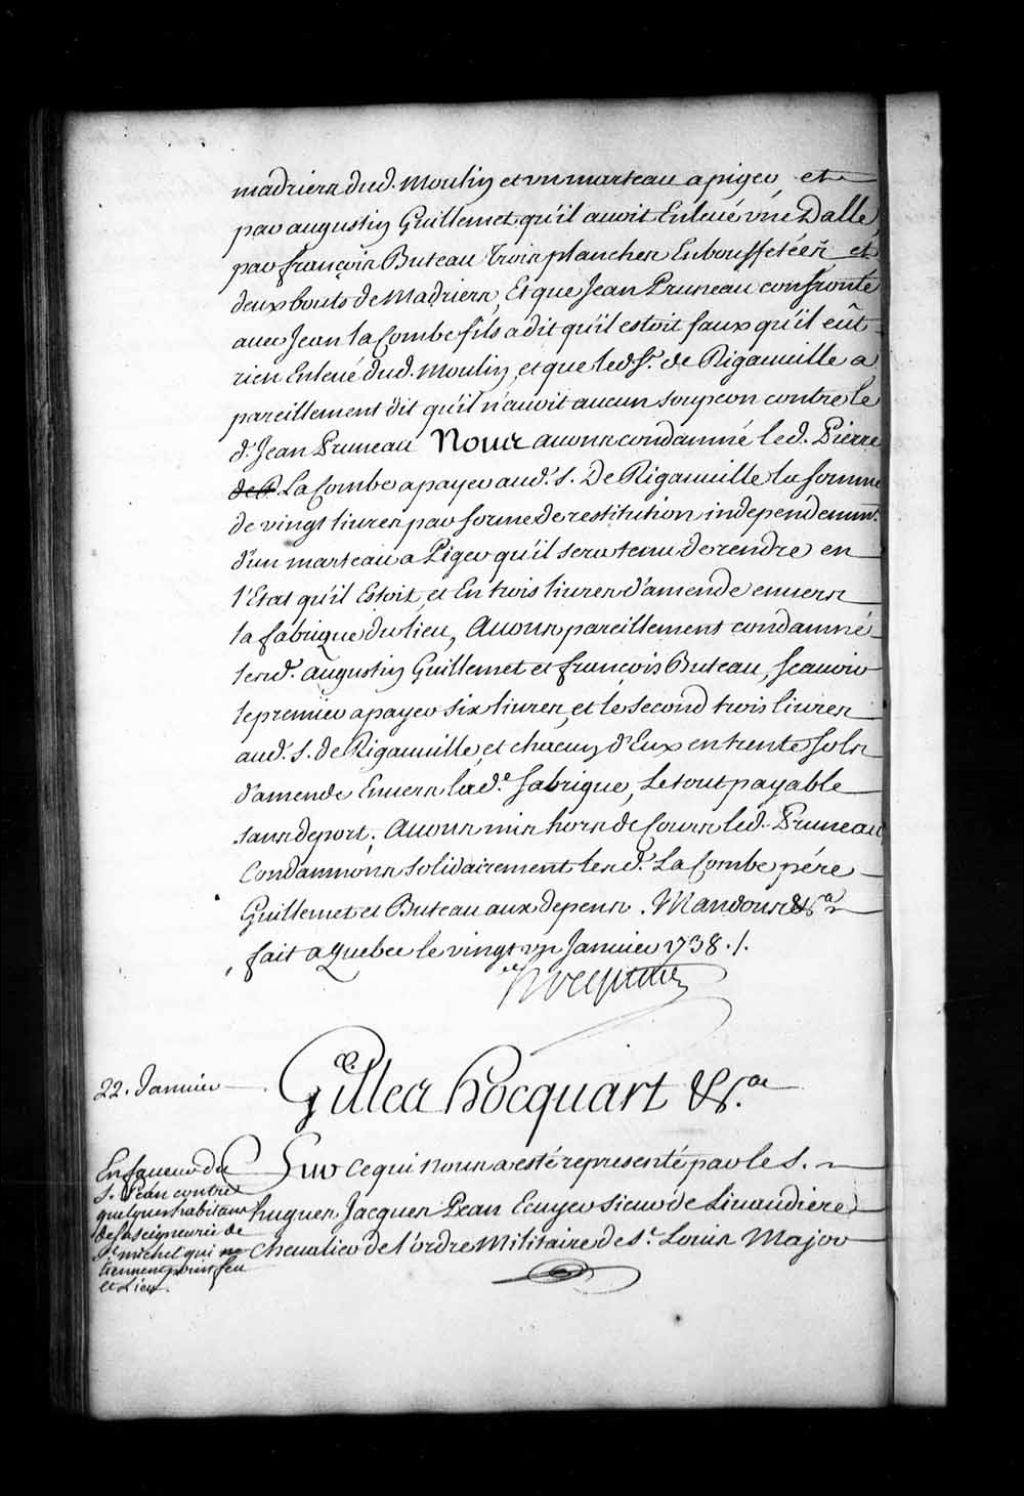 madriers dud. Moulin et un marteau a piqer, et
par augustin Guillemet qu'il auoit Enleué vne Dalle,
par françois Buteau trois planches Embouffetées et
deux bouts de Madriers, Et que Jean Pruneau confronté
auec Jean la Combe fils a dit qu'il estoit faux qu'il eût
rien Enleué dud. Moulin, et que led. Sr. de Rigauuille a
pareillement dit qu'il n'auoit aucun soupcon contre le
d. Jean Pruneau Nous auons condamné led. Pierre
La Combe a payer aud. S. De Rigauuille la somme
de vingt liures par forme de restitution independemmt.
d'un marteau a Piqer qu'il sera tenu de rendre en
l'Etat qu'il Estoit, et En trois liures d'amende enuers
la fabrique du lieu, Auons pareillement condamné
lesd. augustin Guillemet et françois Buteau, Scauoir
le premier a payer six liures, et le second trois liures
aud. S. de Rigauuille, et chacun d'Eux en trente sols
d'amende Enuers lad.e fabrique, Le tout payable
sans deport; Auons mis hors de Cours led. Pruneau
Condamnons solidairement lesd. La Combe pére
Guillemet et Buteau aux depens. Mandons &c.a
fait a Quebec le vingt vn Januier 1738 ./.
Hocquart
22. Januier
Gilles hocquart &c.a
En faueur du
S. Pean contre
quelques habitans
de la seigneurie de
St. michel qui ne
tiennent point feu
et Lieu.
Sur ce qui nous a esté representé par le S.
hugues Jacques Pean Ecuyer sieur de Liuaudiere
Cheualier de l'ordre Militaire de St. Louis Major